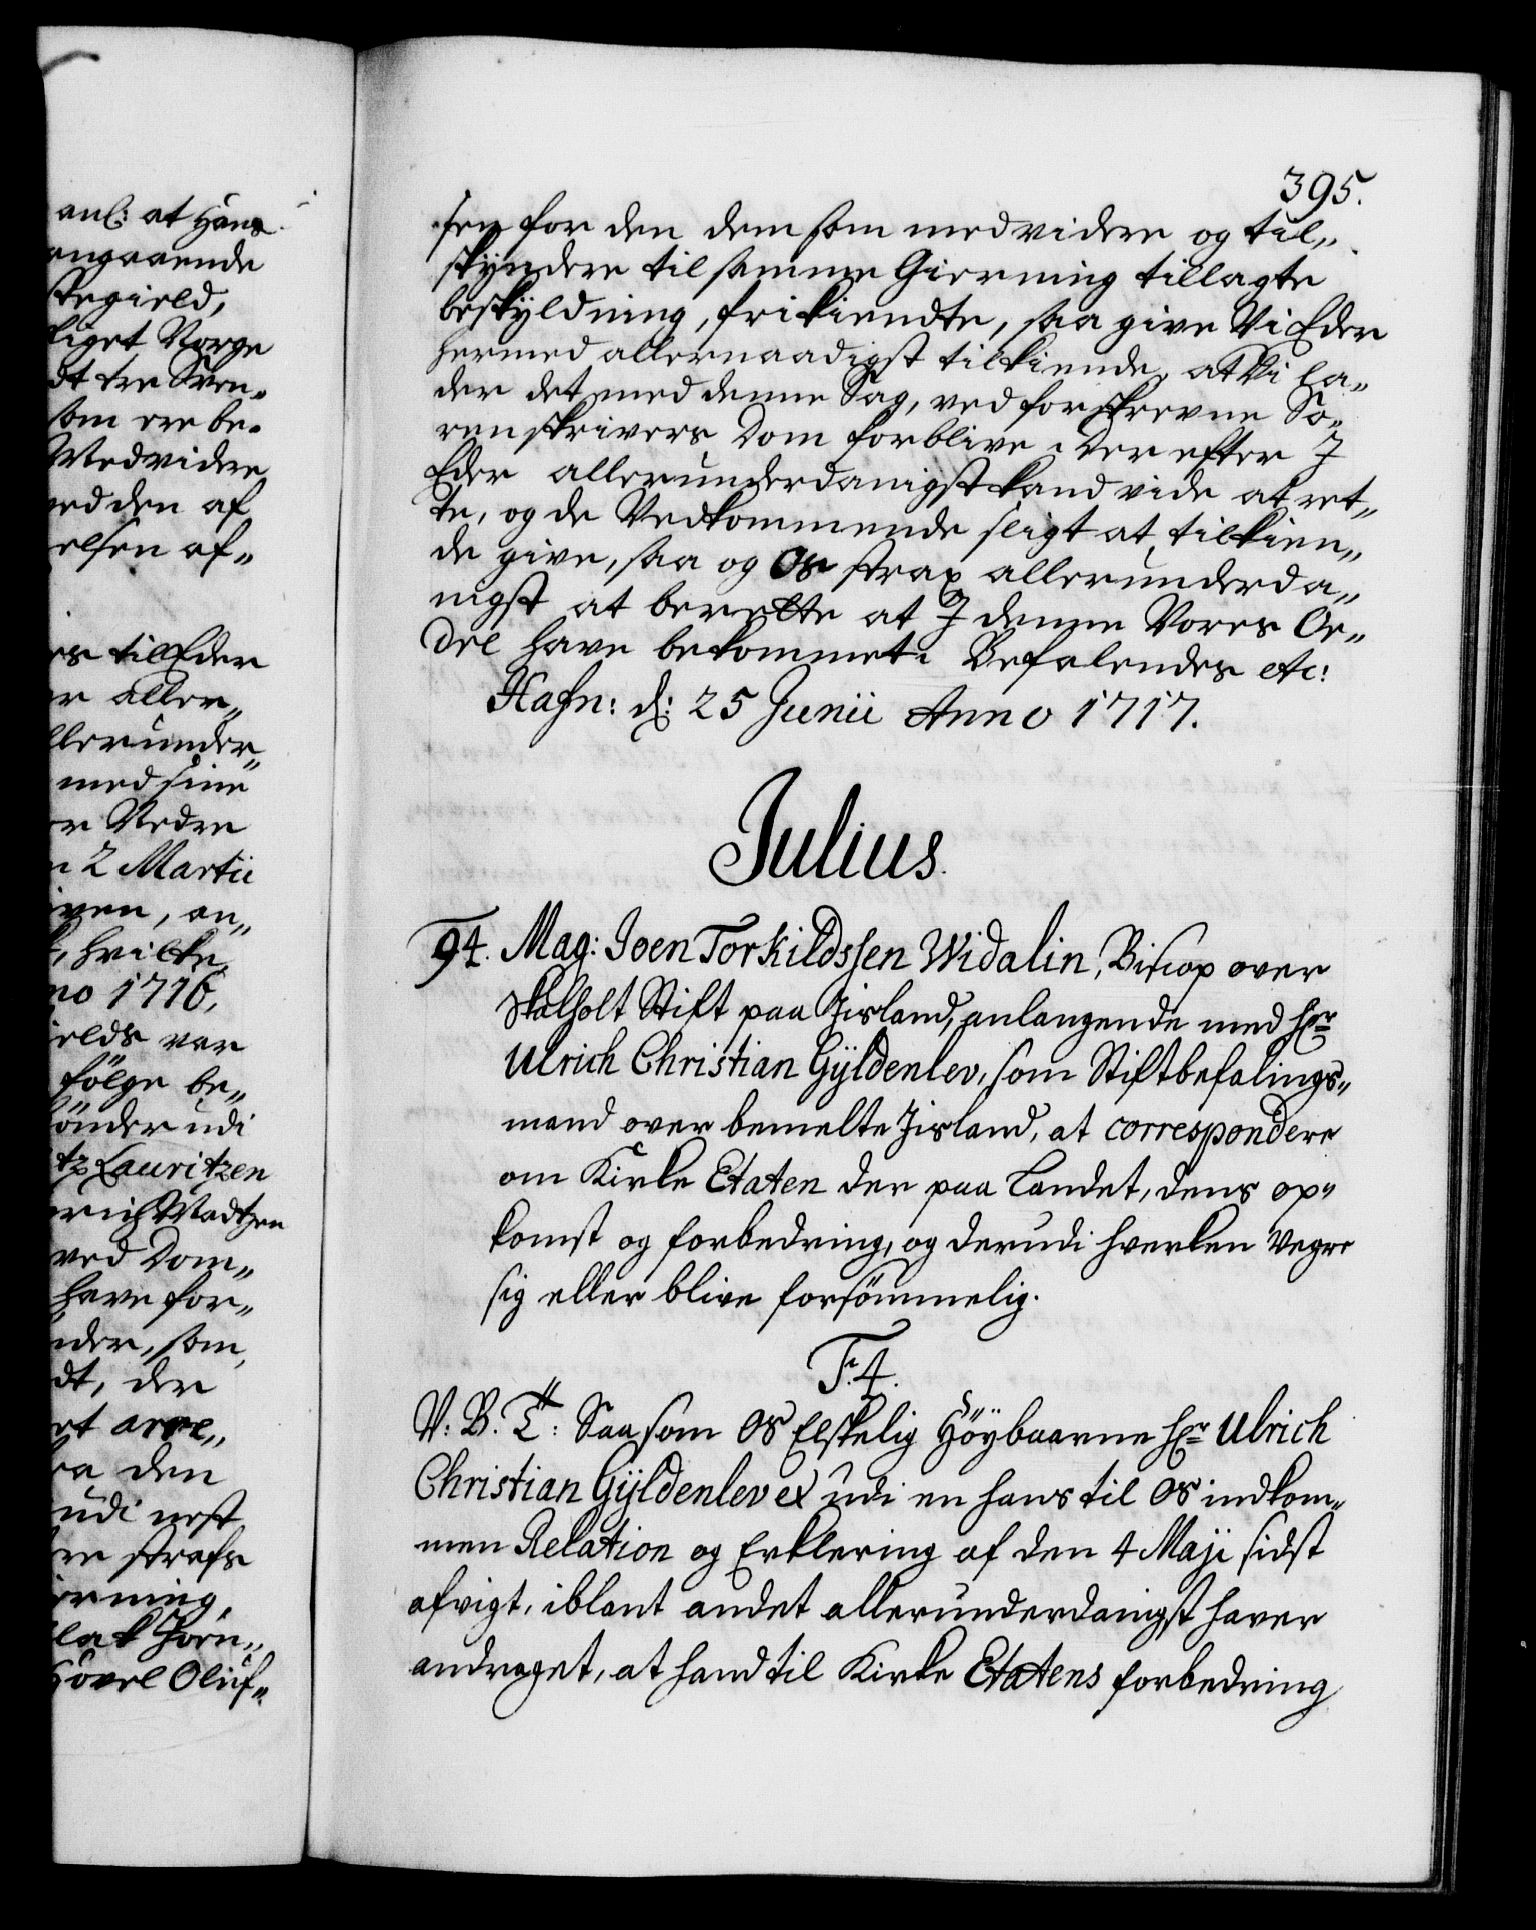 anl: at Hans
angaaende
skegield,
kliget Norge
dt tre Sven„
som ere be„
Medvidere
ved den af
elsen af„
es til Eder
er aller„
llerunder„
med sine
er Vedre
n 2 Martii
iven, an„
k, hvilke
no 1716,
ields var
følge be„
önder udi
tz Lauritzen
erich Madtzen
ved Dom„
have for„
nder, som
dt, der
et arre„
ra den
udi nest
re straf
ierning,
lak Jörn„
Hövel Oluf„
395.
sen for den dem som medvidere og til„
skÿndere til samme Gierning tillagte
beskÿldning, frikiendte, saa give Vi Eder
hermed allernaadigst tilkiende, at Vi la„
der det med denne Sag, ved forskrevne So„
renskrivers Dom forblive. Der efter I
Eder allerunderdanigst kand vide at ret„
te, og de Vedkommende sligt at tilkien„
de give, saa og Os strax allerunderda„
nigst at berette at I denne Vores Or„
dre have bekommet. Befalendes etc:
Hafn: d: 25 Junii Anno 1717.
Julius.
94. Mag: Joen Torkildssen Widalin, Biscop over
Skalholt Stift paa Jisland, anlangende med Hr
Ulrich Christian Gÿldenlev, som Stiftbefalings„
mand over bemelte Jisland, at correspondere
om Kirke Etaten der paa Landet, dens op„
komst og forbedring, og derudi hverken vegre
sig eller blive forsömmelig.
F. 4.
V: B. T: Saasom Os Elskelig Höÿbaarne Hr Ulrich
Christian Gÿldenlev ex udi en hans til Os indkom„
men Relation og Erklering af den 4 Maji sidst
afvigt, iblant andet allerunderdanigst haver
andraget, at hand til Kirke Etatens forbedring